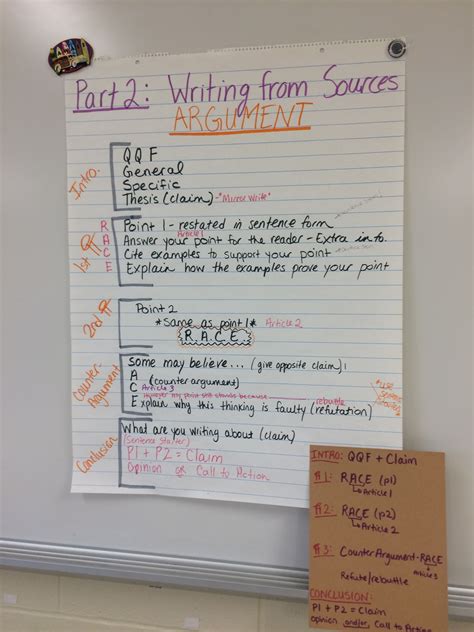 Part 2: Writing from Sources
ARGUMENT
Intro.
QQF
General
Specific
Thesis (claim) - "Mirror Write"
1st ¶
R Point 1 - restated in sentence form
Article 1
A Answer your point for the reader - Extra info.
C Cite examples to support your point
E Explain how the examples prove your point
2nd ¶
Point 2
*Same as point 1* Article 2
R.A.C.E.
Counter-Argument
R Some may believe... (give opposite claim)
A (counter argument)
C Article 3
However my point still stands because rebuttle
E Explain why this thinking is faulty (refutation)
Conclusion
What are you writing about (claim)
(Sentence Starter)
P1 + P2 = Claim
Opinion or Call to Action
INTRO: QQF + Claim
¶1: RACE (p1)
Article 1
¶2: RACE (p2)
Article 2
¶3: Counter Argument - RACE
Article 3
Refute/rebuttle
CONCLUSION:
P1 + P2 = Claim
opinion and/or Call to Action